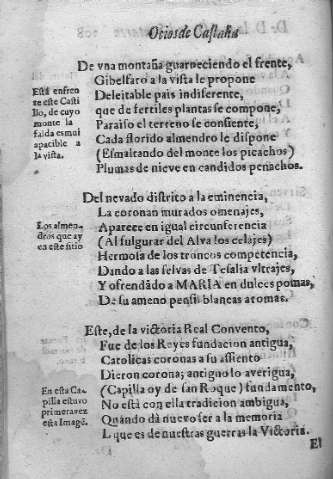 Ocios de Castalia
De vna montaña guarneciendo el frente,
Gibelfaro a la vista le propone
Deleitable pais indiferente,
que de fertiles plantas se compone,
Paraiso el terreno se consiente,
Cada florido almendro le dispone
(Esmaltando del monte los picachos)
Plumas de nieve en candidos penachos.
Está enfren
te este Casti
llo, de cuyo
monte la
falda es mui
apacible a
la vista.
Del nevado distrito a la eminencia,
La coronan murados omenajes,
Aparece en igual circunferencia
(Al fulgurar del Alva los celajes)
Hermosa de los troncos competencia,
Dando a las selvas de Tesalia vltrajes,
Y ofrendãdo a MARIA en dulces pomas,
De su ameno pensil blancas aromas.
Los almen-
dros que ay
en este sitio
Este, de la victoria Real Convento,
Fue de los Reyes fundacion antigua,
Catolicas coronas a su assiento
Dieron corona; antigno lo averigua,
(Capilla oy de san Roque) fundamento,
No está con ella tradicion ambigua,
Quando dà nuevo ser a la memoria
Lque es de nuestras guerras la Victoria.
En esta Ca-
pilla estuvo
primeravez
esta Imagẽ.
El